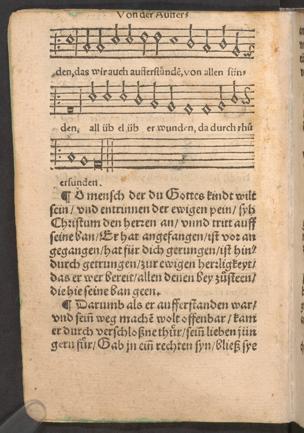 Von der Aufers
den, das wir auch aufferstündē, von allen sün-
den, all üb el üb er wunden, da durch rhů
erfunden.
¶ O mensch der du Gottes kindt wilt
sein / vnd entrinnen der ewigen pein / syh
Christum den herzen an / vnnd tritt auff
seine ban / Er hat angefangen / ist vor an
gegangen / hat für dich gerungen / ist hin
durch getrungen / zur ewigen herzligkeyt /
das er wer bereit / allen denen bey zůsteen /
die hie seine ban geen.
¶ Darumb als er aufferstanden war /
vnd sein̄ weg machē wolt offenbar / kam
er durch verschloßne thür / sein̄ lieben jün
gern für / Gab in ein̄ rechten syn / bließ sye